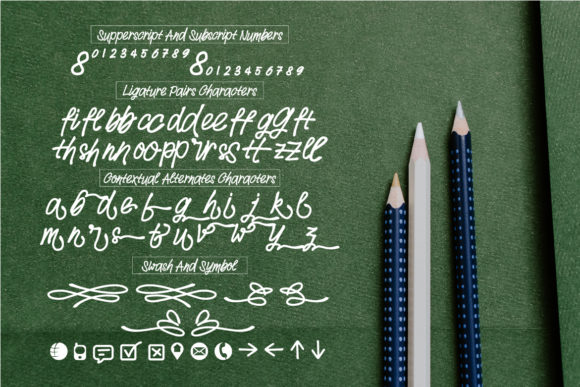 Supperscript And Subscript Numbers
8⁰¹²³⁴⁵⁶⁷⁸⁹ 8₀₁₂₃₄₅₆₇₈₉
Ligature Pairs Characters
fi fl bb cc dd ee ff gg ft
th sh nn oo pp rr ss tt zz ll
Contextual Alternates Characters
a b d e f g h i j k l
m n r s t u v w y z
Swash And Symbol